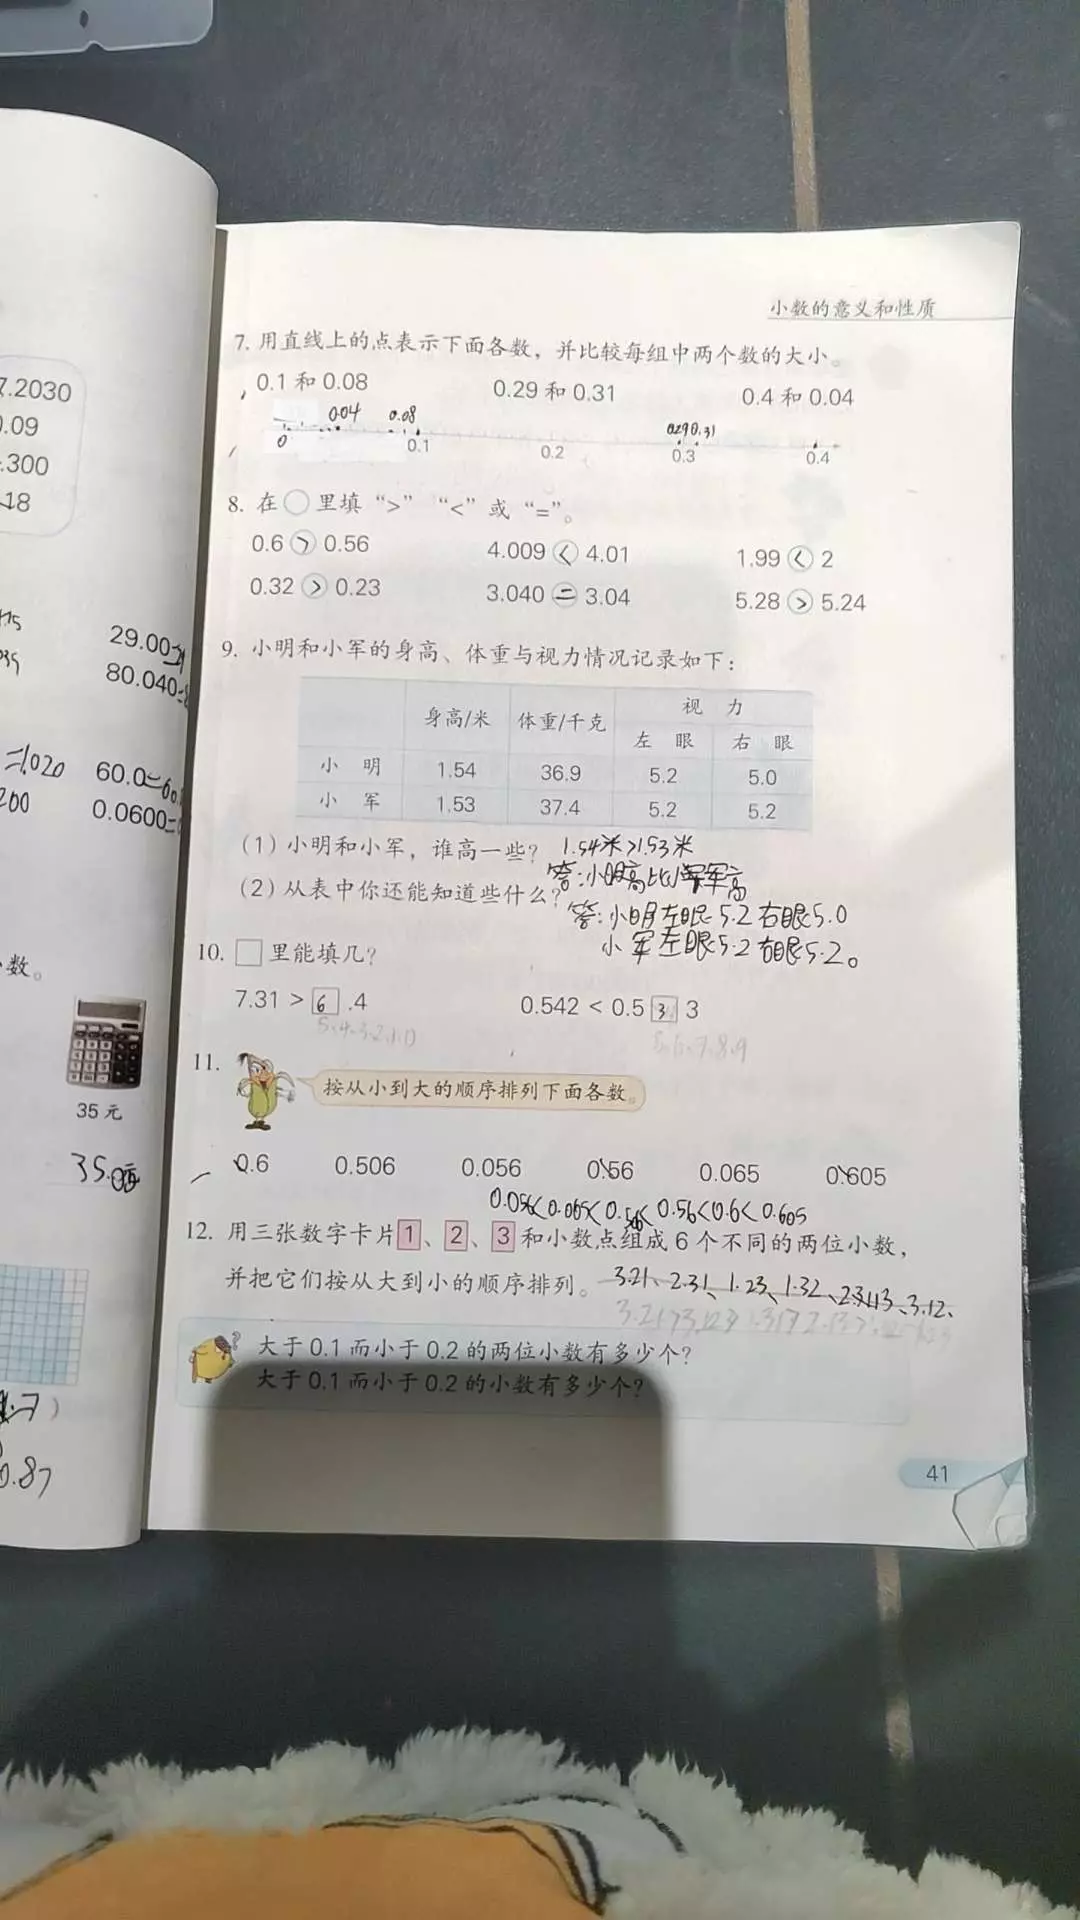 7.2030
0.09
.300
18
29.00=
80.040=
=1.020
60.0=60.
200
0.0600=
数。
35 元
35.00
0.87
小数的意义和性质
7. 用直线上的点表示下面各数，并比较每组中两个数的大小。
0.1 和 0.08 0.29 和 0.31 0.4 和 0.04
0.04 0.08 0.29 0.31
0 0.1 0.2 0.3 0.4
8. 在○里填“>”“<”或“=”。
0.6 > 0.56 4.009 < 4.01 1.99 < 2
0.32 > 0.23 3.040 = 3.04 5.28 > 5.24
9. 小明和小军的身高、体重与视力情况记录如下：
身高/米 体重/千克 视 力
左 眼 右 眼
小 明 1.54 36.9 5.2 5.0
小 军 1.53 37.4 5.2 5.2
(1) 小明和小军，谁高一些? 1.54米>1.53米
答:小明高比小军高
(2) 从表中你还能知道些什么?
答:小明左眼5.2右眼5.0
小军左眼5.2右眼5.2。
10. □里能填几?
7.31 > 6 .4 0.542 < 0.5 3 3
5.4.3.2.1.0 5.6.7.8.9
11. 按从小到大的顺序排列下面各数。
0.6 0.506 0.056 0.56 0.065 0.605
0.056<0.065<0.506<0.56<0.6<0.605
12. 用三张数字卡片 1、2、3 和小数点组成 6 个不同的两位小数，
并把它们按从大到小的顺序排列。 3.21、2.31、1.23、1.32、2.13、3.12、
大于 0.1 而小于 0.2 的两位小数有多少个?
大于 0.1 而小于 0.2 的小数有多少个?
41